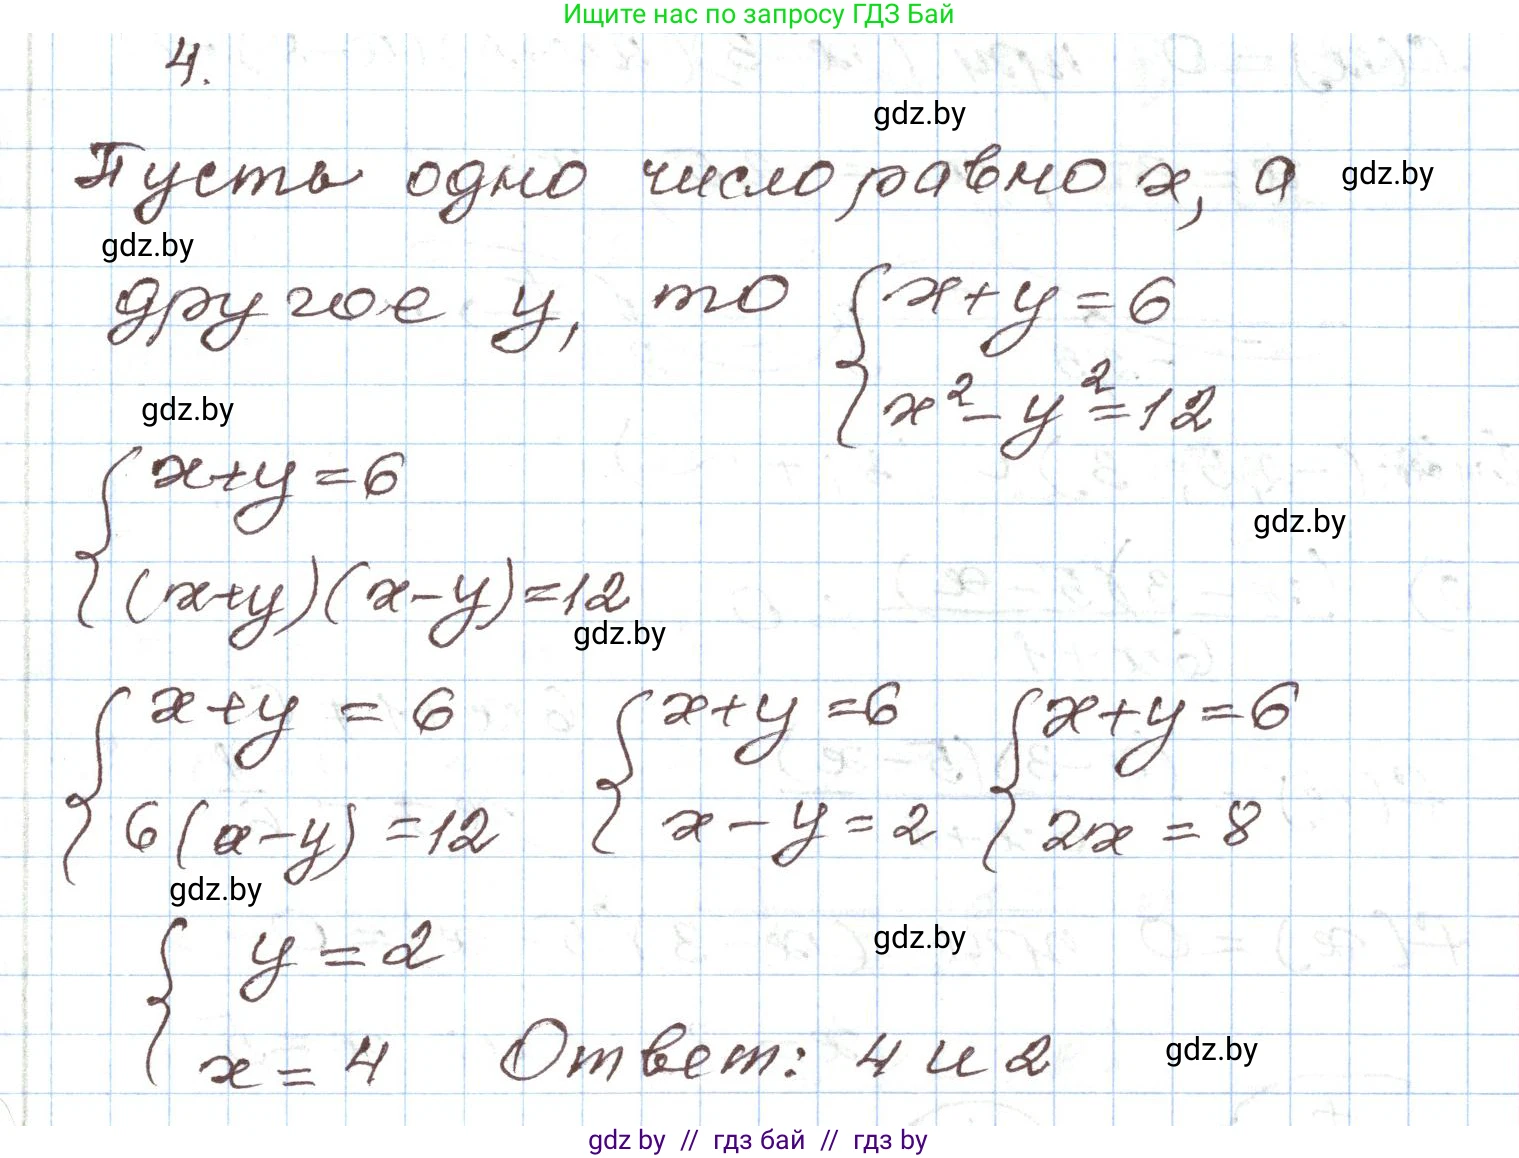 Ищите нас по запросу ГДЗ Бай
4.
gdz.by
Пусть одно число равно x, а
gdz.by
gdz.by
другое y, то { x+y=6
x²-y²=12
gdz.by
{ x+y=6
gdz.by
(x+y)(x-y)=12
gdz.by
{ x+y=6 { x+y=6 { x+y=6
6(x-y)=12 x-y=2 2x=8
gdz.by
{ y=2
gdz.by
x=4 Ответ: 4 и 2
gdz.by
gdz by // гдз бай // гдз by